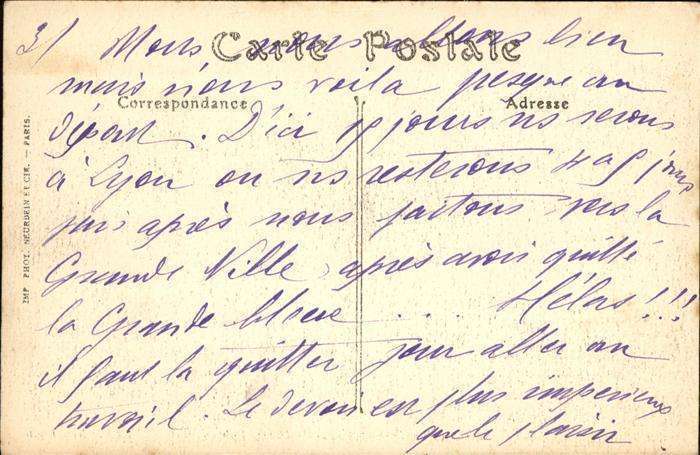 3/ Nous nous allons bien
Carte Postale
mais nous voilà presque au
Correspondance
Adresse
départ. D'ici 15 jours ns serons
à Lyon où ns resterons 4 à 5 jours
puis après nous partons vers la
Grande Ville, après avoir quitté
la Grande bleue.... Hélas!!!
il faut la quitter pour aller au
travail. Le devoir est plus impérieux
que le plaisir.
IMP. PHOT. NEURDEIN ET CIE. — PARIS.